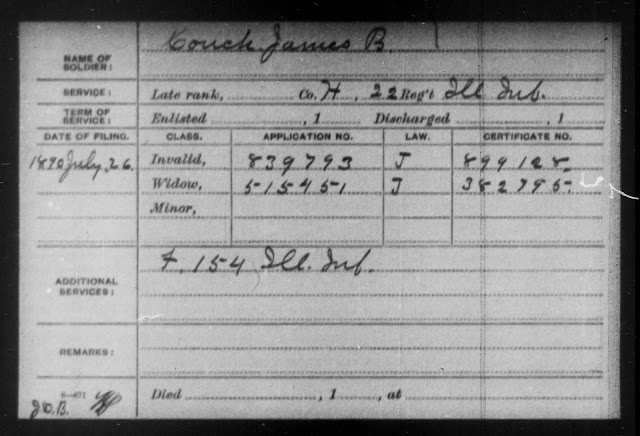 Couch James B
NAME OF SOLDIER:
SERVICE: Late rank, Co. H, 22 Reg't Ill Inf.
TERM OF SERVICE: Enlisted , 1 Discharged , 1
DATE OF FILING. CLASS. APPLICATION NO. LAW. CERTIFICATE NO.
1890 July, 26. Invalid, 839793 J 899128.
Widow, 515451 J 382795.
Minor,
F. 154 Ill. Inf.
ADDITIONAL SERVICES:
REMARKS:
6-671 Died , 1 , at
J.O.B.